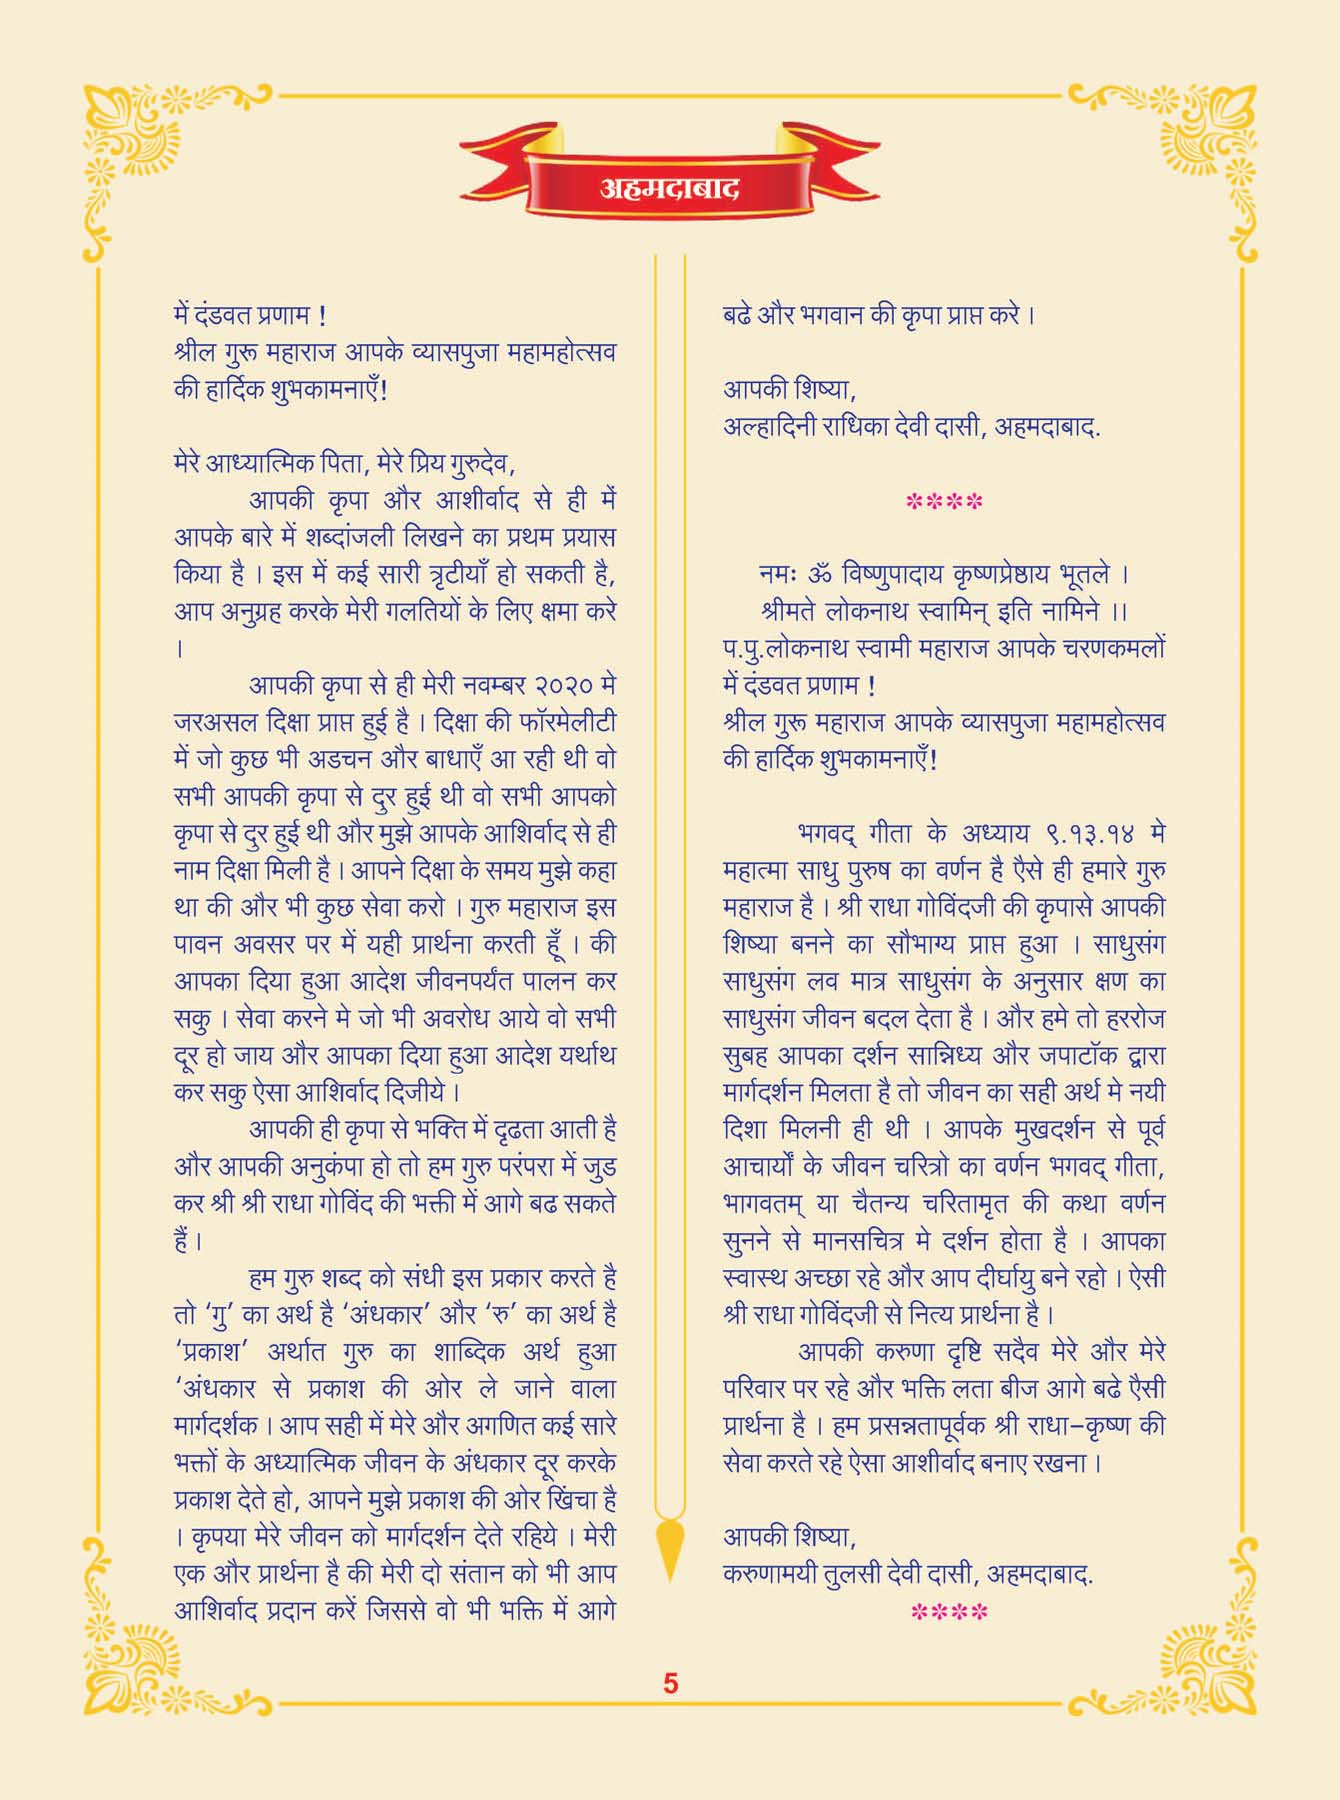 अहमदाबाद
में दंडवत प्रणाम !
श्रील गुरू महाराज आपके व्यासपुजा महामहोत्सव
की हार्दिक शुभकामनाएँ!
मेरे आध्यात्मिक पिता, मेरे प्रिय गुरुदेव,
आपकी कृपा और आशीर्वाद से ही में
आपके बारे में शब्दांजली लिखने का प्रथम प्रयास
किया है । इस में कई सारी त्रृटीयाँ हो सकती है,
आप अनुग्रह करके मेरी गलतियों के लिए क्षमा करे
।
आपकी कृपा से ही मेरी नवम्बर २०२० मे
जरअसल दिक्षा प्राप्त हुई है । दिक्षा की फॉरमेलीटी
में जो कुछ भी अडचन और बाधाएँ आ रही थी वो
सभी आपकी कृपा से दुर हुई थी वो सभी आपको
कृपा से दुर हुई थी और मुझे आपके आशिर्वाद से ही
नाम दिक्षा मिली है । आपने दिक्षा के समय मुझे कहा
था की और भी कुछ सेवा करो । गुरु महाराज इस
पावन अवसर पर में यही प्रार्थना करती हूँ । की
आपका दिया हुआ आदेश जीवनपर्यंत पालन कर
सकु । सेवा करने मे जो भी अवरोध आये वो सभी
दूर हो जाय और आपका दिया हुआ आदेश यर्थाथ
कर सकु ऐसा आशिर्वाद दिजीये ।
आपकी ही कृपा से भक्ति में दृढता आती है
और आपकी अनुकंपा हो तो हम गुरु परंपरा में जुड
कर श्री श्री राधा गोविंद की भक्ती में आगे बढ सकते
हैं ।
हम गुरु शब्द को संधी इस प्रकार करते है
तो ‘गु’ का अर्थ है ‘अंधकार’ और ‘रु’ का अर्थ है
‘प्रकाश’ अर्थात गुरु का शाब्दिक अर्थ हुआ
‘अंधकार से प्रकाश की ओर ले जाने वाला
मार्गदर्शक । आप सही में मेरे और अगणित कई सारे
भक्तों के अध्यात्मिक जीवन के अंधकार दूर करके
प्रकाश देते हो, आपने मुझे प्रकाश की ओर खिंचा है
। कृपया मेरे जीवन को मार्गदर्शन देते रहिये । मेरी
एक और प्रार्थना है की मेरी दो संतान को भी आप
आशिर्वाद प्रदान करें जिससे वो भी भक्ति में आगे
बढे और भगवान की कृपा प्राप्त करे ।
आपकी शिष्या,
अल्हादिनी राधिका देवी दासी, अहमदाबाद.
****
नमः ॐ विष्णुपादाय कृष्णप्रेष्ठाय भूतले ।
श्रीमते लोकनाथ स्वामिन् इति नामिने ।।
प.पु.लोकनाथ स्वामी महाराज आपके चरणकमलों
में दंडवत प्रणाम !
श्रील गुरू महाराज आपके व्यासपुजा महामहोत्सव
की हार्दिक शुभकामनाएँ!
भगवद् गीता के अध्याय ९.१३.१४ मे
महात्मा साधु पुरुष का वर्णन है एैसे ही हमारे गुरु
महाराज है । श्री राधा गोविंदजी की कृपासे आपकी
शिष्या बनने का सौभाग्य प्राप्त हुआ । साधुसंग
साधुसंग लव मात्र साधुसंग के अनुसार क्षण का
साधुसंग जीवन बदल देता है । और हमे तो हररोज
सुबह आपका दर्शन सान्निध्य और जपाटॉक द्वारा
मार्गदर्शन मिलता है तो जीवन का सही अर्थ मे नयी
दिशा मिलनी ही थी । आपके मुखदर्शन से पूर्व
आचार्यों के जीवन चरित्रो का वर्णन भगवद् गीता,
भागवतम् या चैतन्य चरितामृत की कथा वर्णन
सुनने से मानसचित्र मे दर्शन होता है । आपका
स्वास्थ अच्छा रहे और आप दीर्घायु बने रहो । ऐसी
श्री राधा गोविंदजी से नित्य प्रार्थना है ।
आपकी करुणा दृष्टि सदैव मेरे और मेरे
परिवार पर रहे और भक्ति लता बीज आगे बढे एैसी
प्रार्थना है । हम प्रसन्नतापूर्वक श्री राधा-कृष्ण की
सेवा करते रहे ऐसा आशीर्वाद बनाए रखना ।
आपकी शिष्या,
करुणामयी तुलसी देवी दासी, अहमदाबाद.
****
5